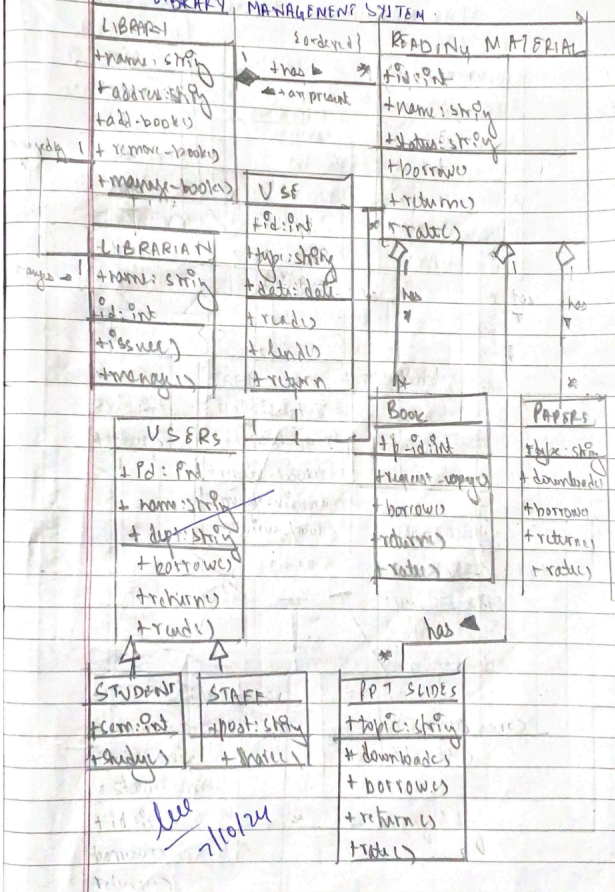 LIBRARY MANAGEMENT SYSTEM
LIBRARY
+name: string
+address: string
+add-book()
+ remove-book()
+manage-book()
{ordered}
1
+has ▶
*
READING MATERIAL
+id: int
+name: string
+status: string
+borrow()
+return()
+rate()
1
LIBRARIAN
+name: string
id: int
+issue()
+manage()
1
USE
+id: int
+type: string
+date: date
+read()
+lend()
+return
*
has
has
*
*
USERS
+id: int
+ name: string
+ dept: string
+borrow()
+return()
+read()
1
Book
+b-id: int
+borrow()
+return()
+rate()
PAPERS
+type: string
+ download()
+borrow()
+return()
+rate()
has ◀
*
STUDENT
+sem: int
+study()
STAFF
+post: string
+share()
PPT SLIDES
+topic: string
+ download()
+ borrow()
+ return()
+rate()
7/10/24